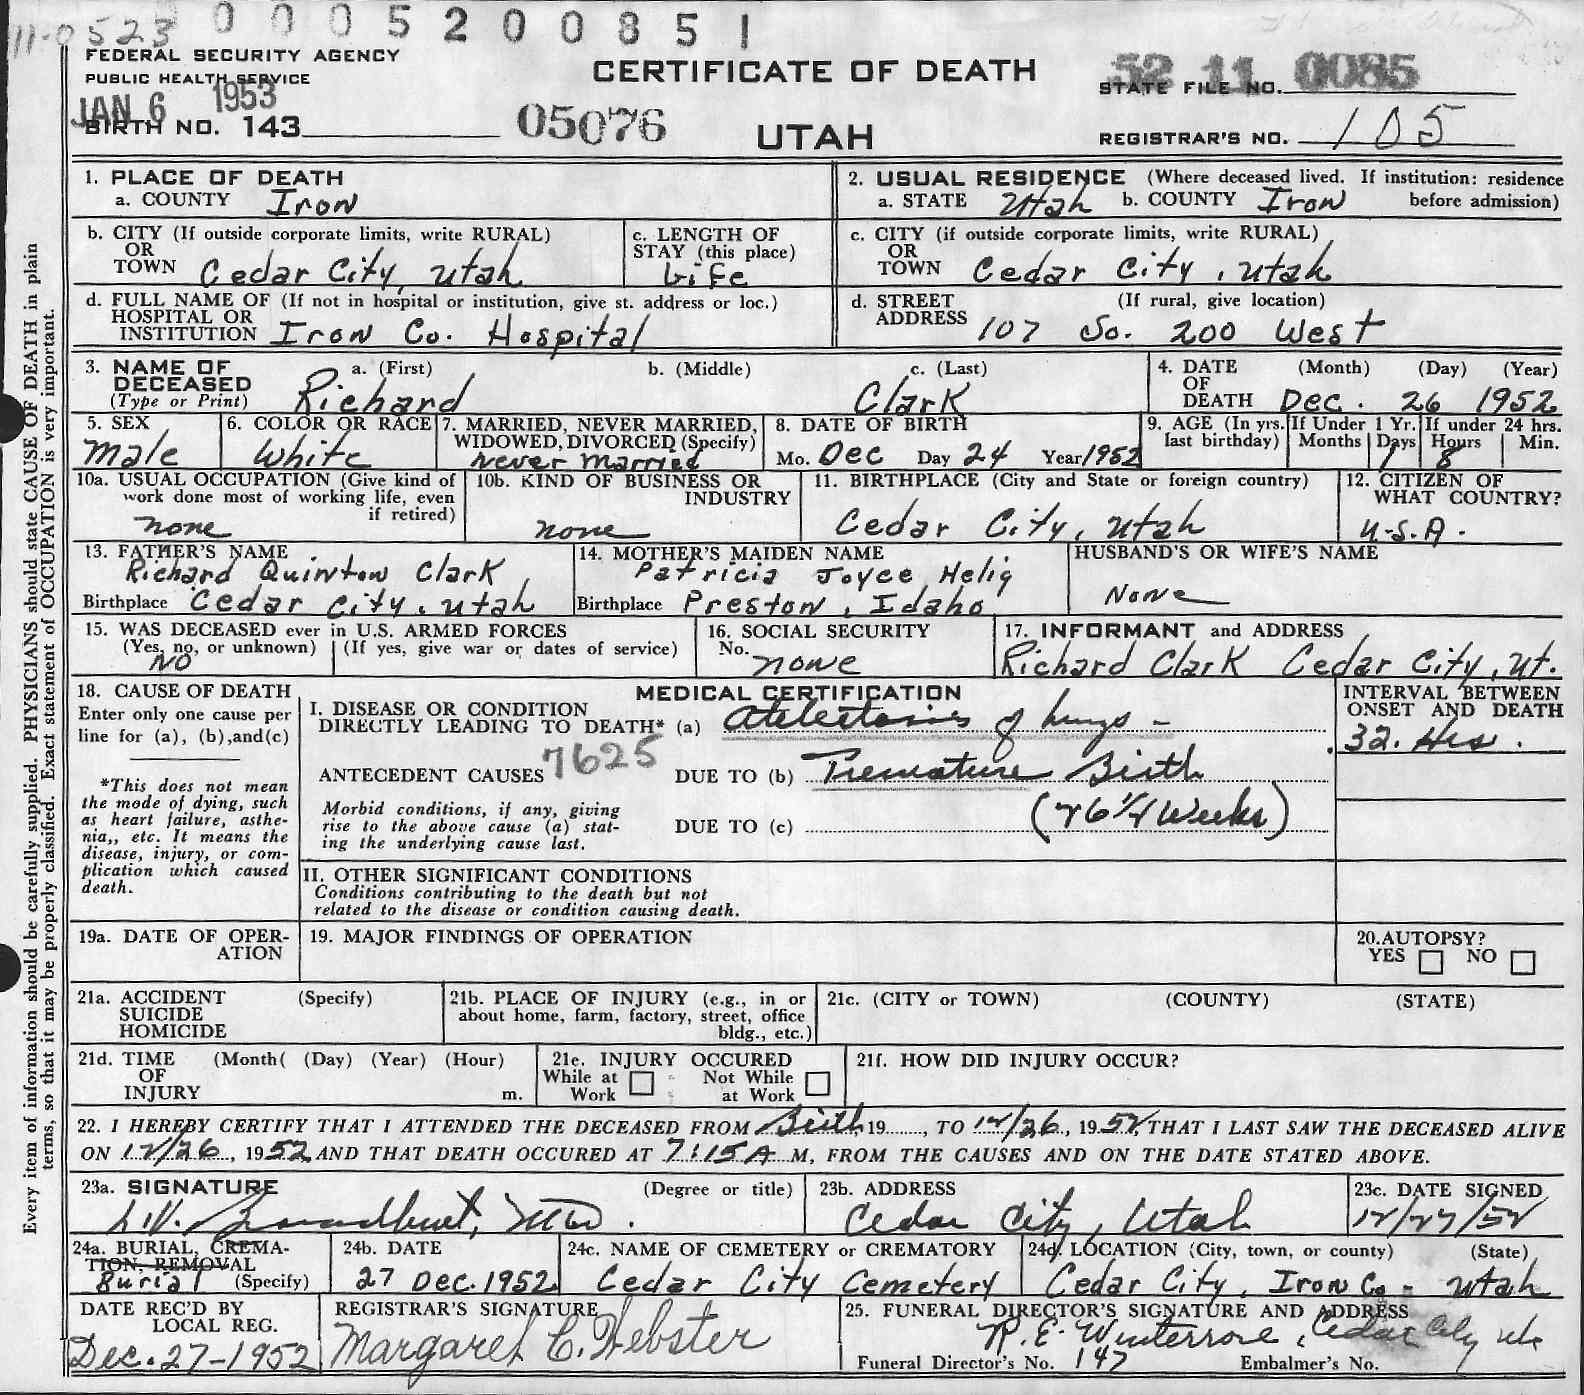 11-0523 000520085 1
FEDERAL SECURITY AGENCY
PUBLIC HEALTH SERVICE
JAN 6 1953
BIRTH NO. 143
05076
CERTIFICATE OF DEATH
UTAH
52 11 0085
STATE FILE NO.
REGISTRAR'S NO. 105
1. PLACE OF DEATH
a. COUNTY Iron
2. USUAL RESIDENCE (Where deceased lived. If institution: residence before admission)
a. STATE Utah b. COUNTY Iron
b. CITY (If outside corporate limits, write RURAL)
OR
TOWN Cedar City, Utah
c. LENGTH OF
STAY (this place)
Life
c. CITY (if outside corporate limits, write RURAL)
OR
TOWN Cedar City, Utah
d. FULL NAME OF (If not in hospital or institution, give st. address or loc.)
HOSPITAL OR
INSTITUTION Iron Co. Hospital
d. STREET (If rural, give location)
ADDRESS 107 So. 200 West
3. NAME OF a. (First) b. (Middle) c. (Last)
DECEASED
(Type or Print) Richard Clark
4. DATE (Month) (Day) (Year)
OF
DEATH Dec. 26 1952
5. SEX
Male
6. COLOR OR RACE
White
7. MARRIED, NEVER MARRIED,
WIDOWED, DIVORCED (Specify)
Never Married
8. DATE OF BIRTH
Mo. Dec Day 24 Year 1952
9. AGE (In yrs. last birthday)
If Under 1 Yr.
Months Days
1
If under 24 hrs.
Hours Min.
8
10a. USUAL OCCUPATION (Give kind of
work done most of working life, even
if retired)
none
10b. KIND OF BUSINESS OR
INDUSTRY
none
11. BIRTHPLACE (City and State or foreign country)
Cedar City, Utah
12. CITIZEN OF
WHAT COUNTRY?
U.S.A.
13. FATHER'S NAME
Richard Quinton Clark
Birthplace Cedar City, Utah
14. MOTHER'S MAIDEN NAME
Patricia Joyce Helig
Birthplace Preston, Idaho
HUSBAND'S OR WIFE'S NAME
None
15. WAS DECEASED ever in U.S. ARMED FORCES
(Yes, no, or unknown) (If yes, give war or dates of service)
NO
16. SOCIAL SECURITY
No. none
17. INFORMANT and ADDRESS
Richard Clark Cedar City, Ut.
18. CAUSE OF DEATH
Enter only one cause per
line for (a), (b), and (c)
*This does not mean
the mode of dying, such
as heart failure, asthe-
nia,, etc. It means the
disease, injury, or com-
plication which caused
death.
MEDICAL CERTIFICATION
I. DISEASE OR CONDITION
DIRECTLY LEADING TO DEATH* (a) Atelectasis of lungs -
7625
ANTECEDENT CAUSES DUE TO (b) Premature Birth
(26 1/4 Weeks)
Morbid conditions, if any, giving
rise to the above cause (a) stat-
ing the underlying cause last.
DUE TO (c)
INTERVAL BETWEEN
ONSET AND DEATH
32. Hrs.
II. OTHER SIGNIFICANT CONDITIONS
Conditions contributing to the death but not
related to the disease or condition causing death.
19a. DATE OF OPER-
ATION
19. MAJOR FINDINGS OF OPERATION
20. AUTOPSY?
YES NO
21a. ACCIDENT (Specify)
SUICIDE
HOMICIDE
21b. PLACE OF INJURY (e.g., in or
about home, farm, factory, street, office
bldg., etc.)
21c. (CITY or TOWN) (COUNTY) (STATE)
21d. TIME (Month( (Day) (Year) (Hour)
OF
INJURY m.
21e. INJURY OCCURED
While at Work Not While at Work
21f. HOW DID INJURY OCCUR?
22. I HEREBY CERTIFY THAT I ATTENDED THE DECEASED FROM Birth, 19......, TO 12/26, 1952, THAT I LAST SAW THE DECEASED ALIVE
ON 12/26, 1952 AND THAT DEATH OCCURED AT 7:15 A M, FROM THE CAUSES AND ON THE DATE STATED ABOVE.
23a. SIGNATURE (Degree or title)
Broadbent, MD.
23b. ADDRESS
Cedar City, Utah
23c. DATE SIGNED
12/27/52
24a. BURIAL, CREMA-
TION, REMOVAL
Burial (Specify)
24b. DATE
27 Dec. 1952
24c. NAME OF CEMETERY or CREMATORY
Cedar City Cemetery
24d. LOCATION (City, town, or county) (State)
Cedar City, Iron Co - Utah
DATE REC'D BY
LOCAL REG.
Dec. 27-1952
REGISTRAR'S SIGNATURE
Margaret C. Webster
25. FUNERAL DIRECTOR'S SIGNATURE AND ADDRESS
R. E. Winterrose, Cedar City
Funeral Director's No. 147 Embalmer's No.
Every item of information should be carefully supplied. PHYSICIANS should state CAUSE OF DEATH in plain
terms, so that it may be properly classified. Exact statement of OCCUPATION is very important.